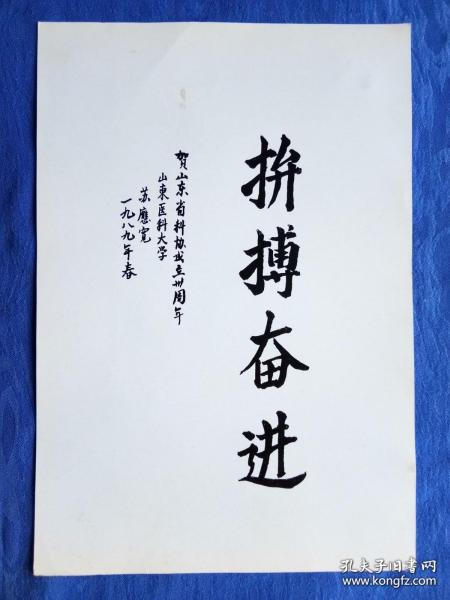 拚搏奋进
贺山东省科协成立卅周年
山東医科大学
苏應宽
一九八九年春
孔夫子旧书网
www.kongfz.com